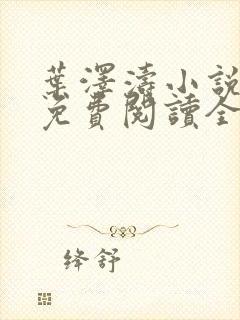 葉澤濤小說
免費閱讀全
绛舒